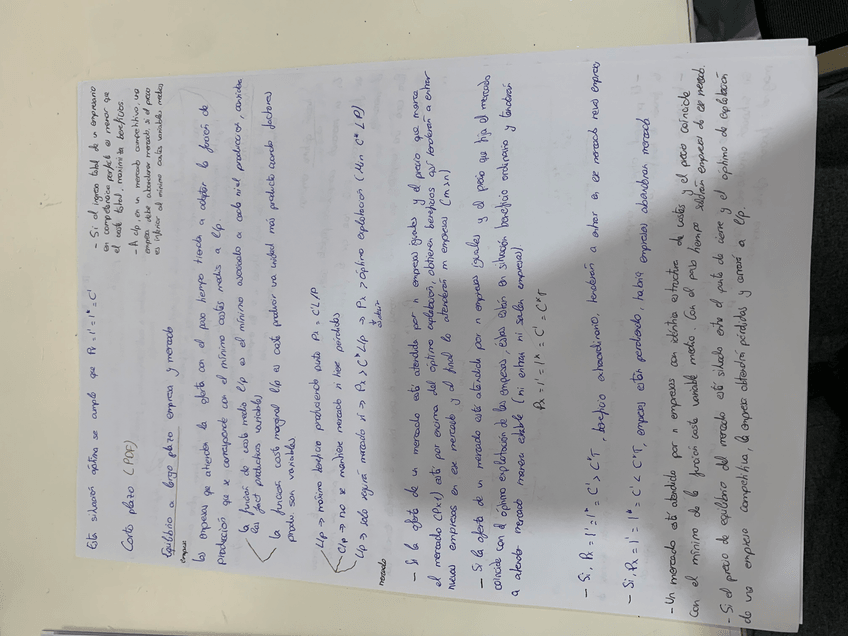 Esta situación óptima se cumple que Px = I' = I* = C'
- Si el ingreso total de un empresario
en competencia perfecta es menor que
el coste total, maximiza beneficios
- A c/p, en un mercado competitivo, una
empresa debe abandonar mercado si el precio
es inferior al mínimo costes variables medios
Corto plazo (PDF)
Equilibrio a largo plazo empresa y mercado
empresa
Las empresas que atienden la oferta con el paso tiempo tienden a adoptar la función de
producción que se corresponde con el mínimo costes medio a l/p.
la función de coste medio l/p es el mínimo asociado a cada nivel producción, considera
los fact productivos variables)
la función coste marginal l/p es coste producir una unidad más producto cuando factores
produc son variables)
L/p => máximo beneficio produciendo punto Px = C'L/P
C/p => no se mantiene mercado si hace pérdidas
L/p => solo seguirá mercado si => Px > C*L/p => Px > óptimo explotación (Min C* L/P)
mercado
- Si la oferta de un mercado está atendida por n empresas iguales y el precio que marca
el mercado (Px1) está por encima del óptimo explotación, obtienen beneficios así tenderán a entrar
nuevas empresas en ese mercado y al final lo atenderán m empresas (m>n)
- Si la oferta de un mercado está atendida por n empresas iguales y el precio que fija el mercado
coincide con el óptimo explotación de las empresas, estas están en situación beneficio ordinario y tenderán
a atender mercado manera estable (ni entran ni salen empresas).
Px = I' = I* = C' = C*T
- Si, Px = I' = I* = C' > C*T, beneficio extraordinario, tenderán a entrar en ese mercado nuevas empresas
- Si, Px = I' = I* = C' < C*T, empresas están perdiendo, habrá empresas abandonan mercado
- Un mercado está atendido por n empresas con idéntica estructura de costes y el precio coincide
con el mínimo de la función coste variable medio. Con el paso tiempo saldrán empresas de ese mercado.
- Si el precio de equilibrio del mercado está situado entre el punto de cierre y el óptimo de explotación
de una empresa competitiva, la empresa obtendrá pérdidas y cerrará a l/p.